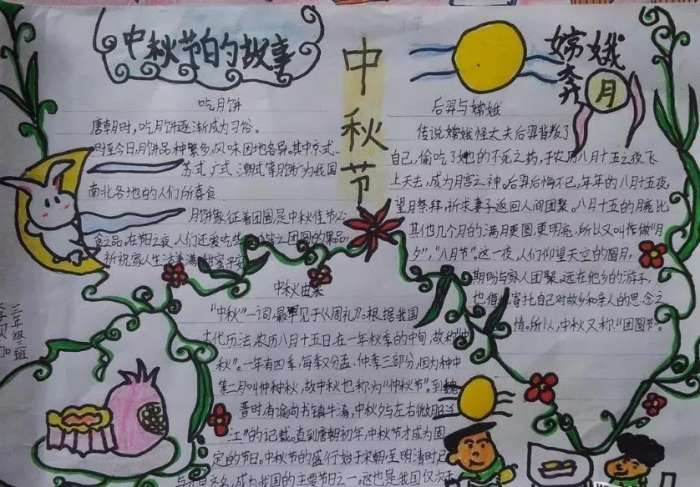 中秋节的故事
吃月饼
唐朝时,吃月饼逐渐成为习俗。
时至今日,月饼品种繁多,风味因地各异。其中京式、
苏式、广式、潮式等月饼为我国
南北各地的人们所喜食
月饼象征着团圆是中秋佳节必
食之品。在节之夜,人们还爱吃些
祝家人生活美满
中秋节
嫦娥奔月
后羿与嫦娥
传说嫦娥怪丈夫后羿
自己,偷吃了她的不死之药,于农历八月十五之夜飞
上天去,成为月宫之神。后羿后悔不已,年年的八月十五夜
望月祭拜,祈求妻子返回人间团聚。八月十五的月亮比
其他几个月的满月更圆更明亮,所以又叫作做"月
夕","八月节"。这一夜,人们仰望天空的圆月,
期盼与家人团聚。远在他乡的游子,
也借寄托自己对故乡和亲人的思念之
情。所以,中秋又称"团圆节"。
中秋由来
"中秋"一词,最早见于《周礼》。根据我国
古代历法,农历八月十五日,在一年秋季的中旬,故称"中
秋"。一年有四季,每季又分孟、仲、季三部分,因为秋中
第二月叫仲秋,故中秋也称为"仲秋节"。到魏
晋时有谕尚书镇牛渚,中秋夕与左右微服泛
江"的记载。直到唐朝初年,中秋节才成为固
定的节日。中秋节的盛行始于宋朝,至明清时已
与元旦齐名,成为我国的主要节日之一。这也是我国仅次于
三年级